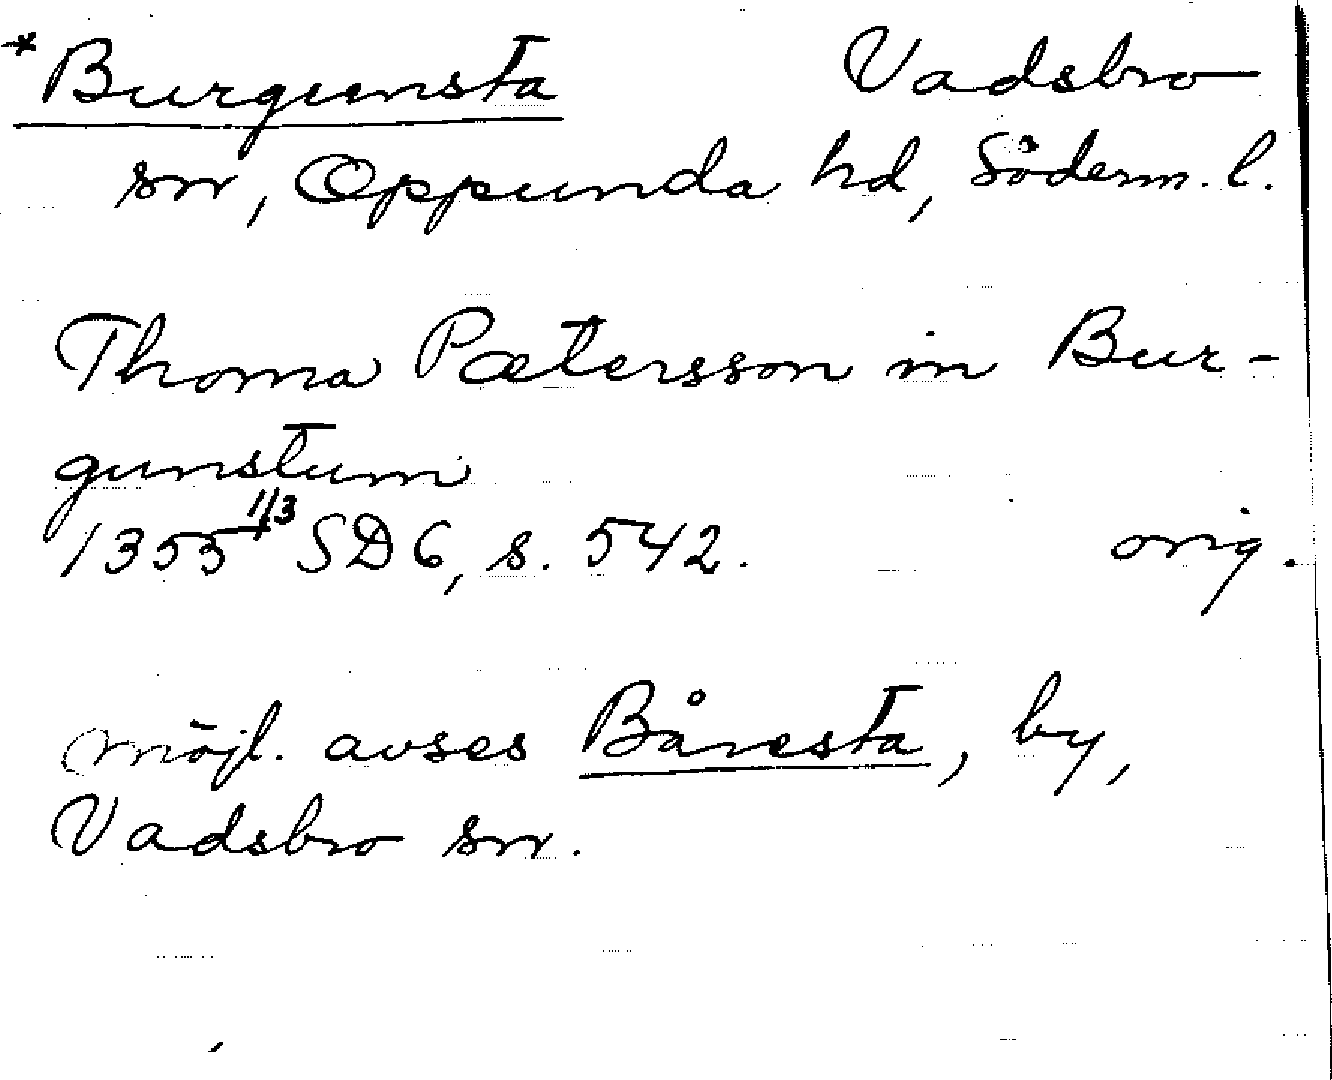 *Burgunsta Vadsbro
sn, Oppunda hd, Söderm. l.
Thoma Pætersson in Bur-
gunstum
1355 1/3 SD 6, s. 542. orig.
möjl. avses Båresta, by,
Vadsbro sn.